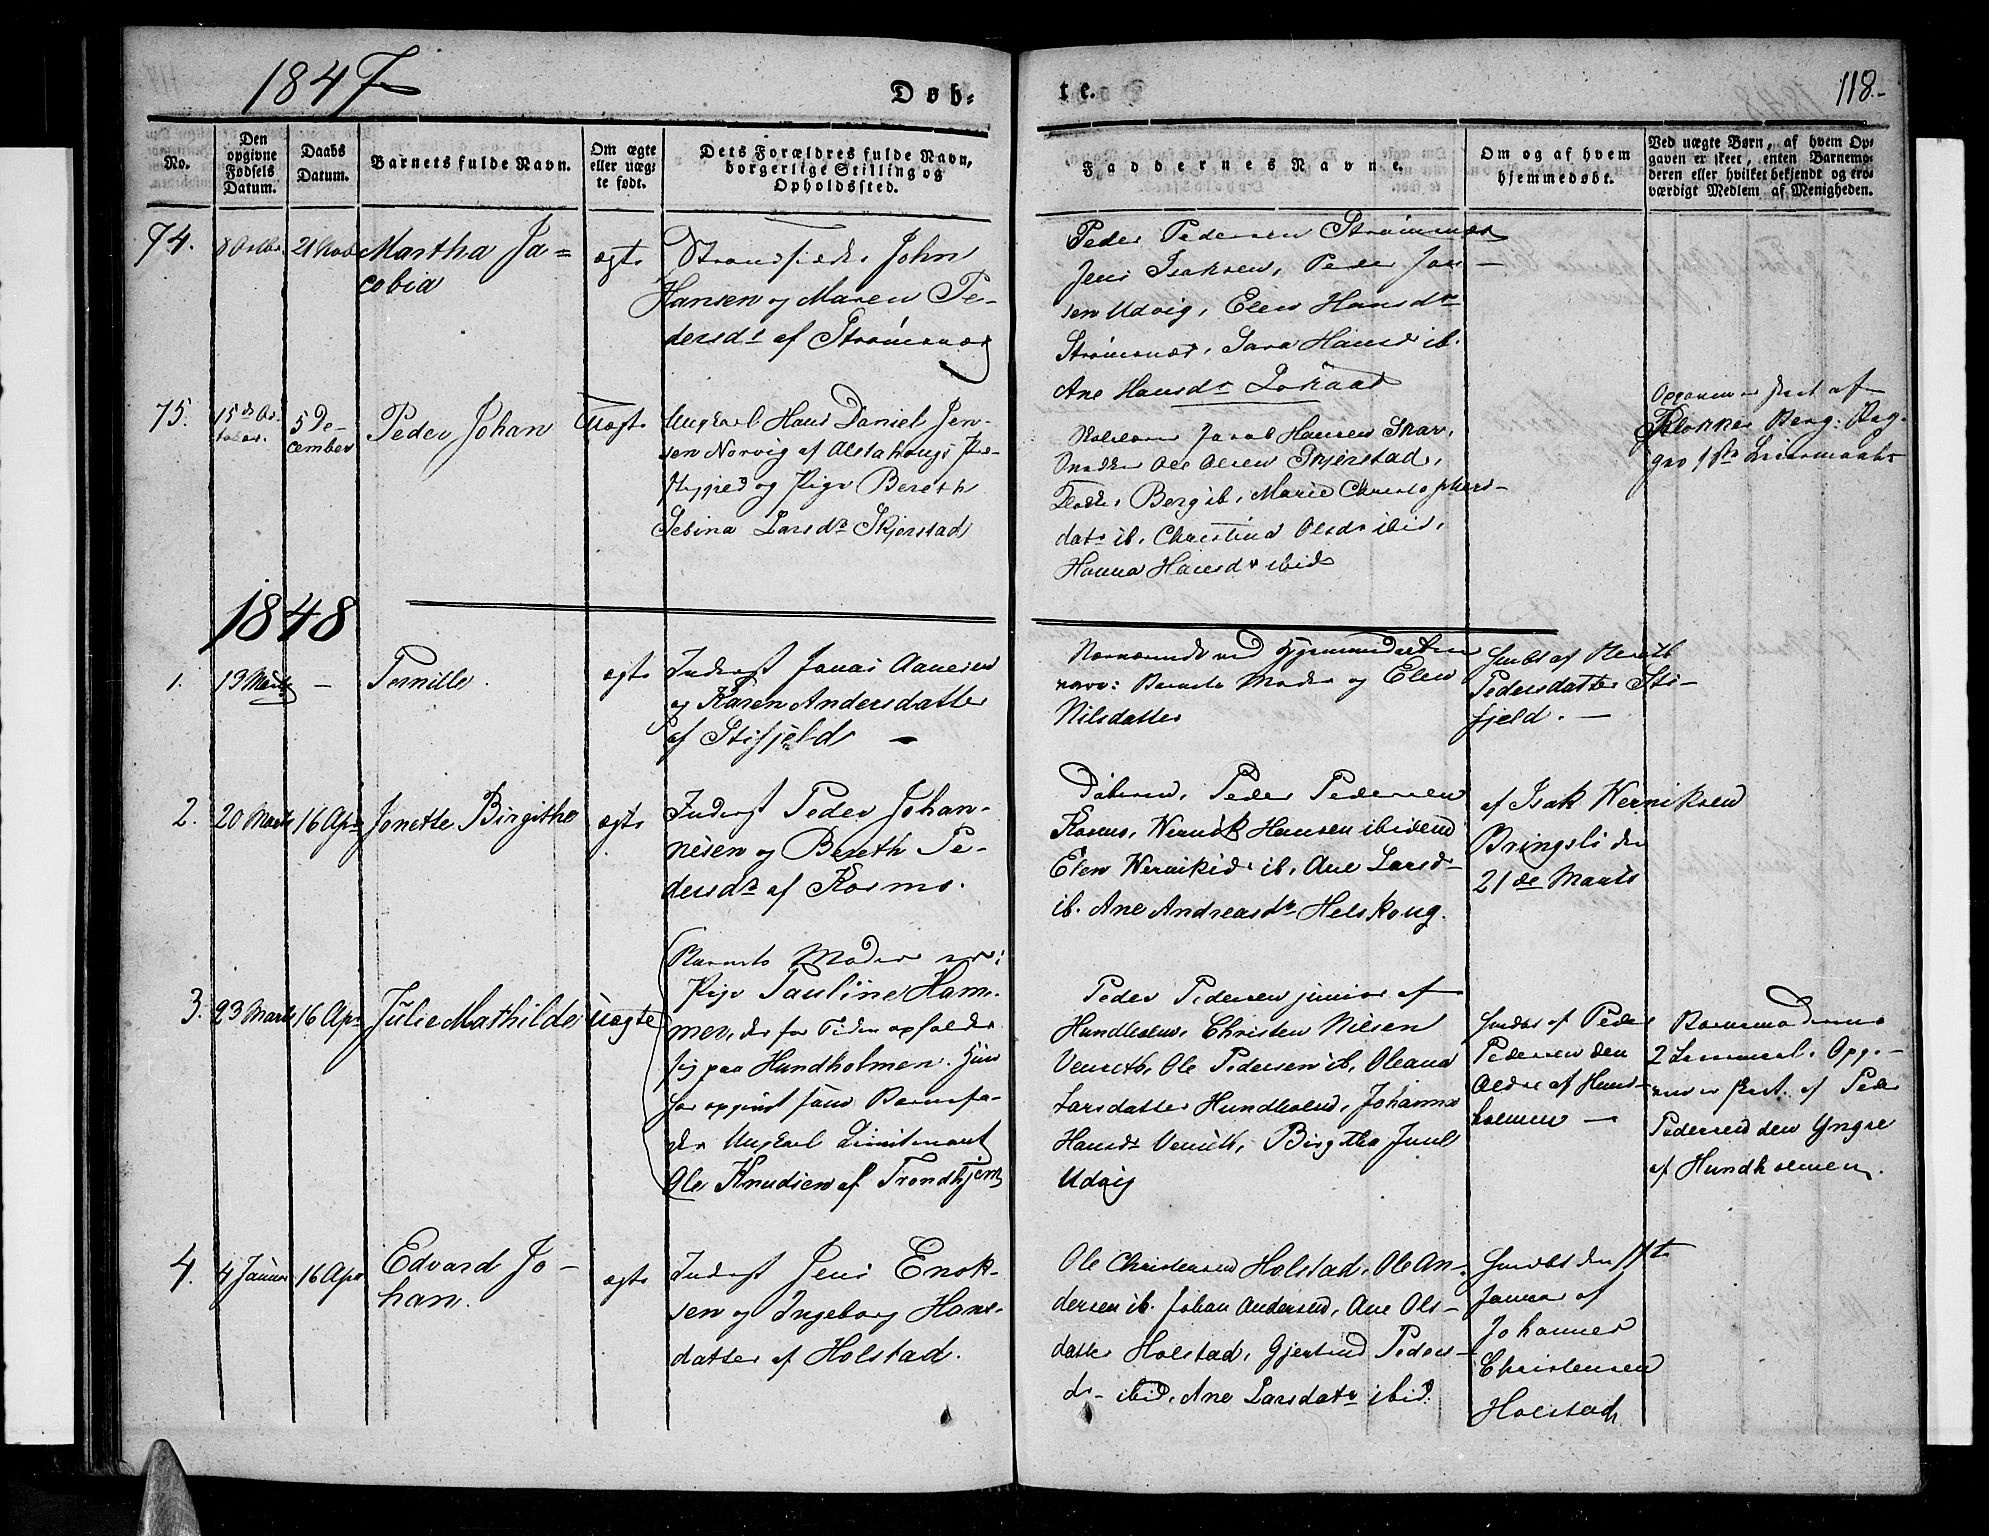 1847
Døb-
te.
118.-
No.
Den opgivne Fødsels Datum.
Daabs Datum.
Barnets fulde Navn.
Om ægte eller uæg-te født.
Dets Forældres fulde Navn, borgerlige Stilling og Opholdssted.
Faddernes Navne.
Om og af hvem hjemmedøbt.
Ved uægte Børn, af hvem Op-
gaven er skeet, enten Barnemo-
deren eller hvilket bekjendt og tro-
værdigt Medlem af Menigheden.
74.
8 Octbr
21 Novb
Martha Ja=
cobia
ægte
John
Hansen og Maren Pe-
dersdr af Strømsnæs
Peder Pedersen Strømsnæs
Jens Isaksen, Peder Jan-
sen Udvig, Elen Hansdr
Strømsnæs, Sara Hansd ib.
Ane Hansdr
75.
15de Oc-
tober
5 De-
cember
Peder Johan
Uægte
Ungkarl Hans Daniel Jen-
sen Norvig af Alstahougs Præ-
stegjeld og Pige Bereth
Sebina Larsdr Skjerstad
Jacob Hansen
Ole Olsen Skjerstad,
Berg ib, Marie Christophers-
datr ib, Christina Olsdr ibid,
Hanna Hansdr ibid
Opgaven er skeet af
Klokker Berg:
1ste Leiermaal
1848
1.
13 Marts
-
Pernille.
ægte
Inderst Jonas Aanesen
og Karen Andersdatter
af Stifjeld -
Nærværende ved Hjemmedaaben
være: Barnets Moder og Elen
Nilsdatter
hmdbt af Bereth
Pedersdatter Sti-
fjeld. -
2.
20 Marts
16 Apr
Jonette Birgithe
ægte
Inderst Peder Johan-
nesen og Bereth Pe-
dersdr af Kosmo.
Døberen, Peder Pedersen
Kosmo, Wernik Hansen ibidem
Elen Werniksdr ib, Ane Larsd-
ib. Ane Andreasdr Helskoug.
af Isak Werniksen
Bringsli den
21de Marts
3.
23 Marts
16 Apr
Julie Mathilde
Uægte
Barnets Moder er:
Pige Pauline Ham-
mer, der for Tiden opholder
sig paa Hundholmen. Hun
har opgivet som Barnefa-
der Ungkarl Lieutenant
Ole Knudsen af Trondhjem
Peder Pedersen junior af
Hundholm, Christen Nilsen
Venseth, Ole Pedersen ib, Oleana
Larsdatter Hundholm, Johanna
Hansdr Venseth, Birgithe Juul
Udvig
hmdbt af Peder
Pedersen den
Ældre af Hund-
holmen -
Barnemoderens
2 Leiermaal. Opga-
ven er skeet af Peder
Pedersen den Yngre
af Hundholmen.
4.
4 Januar
16 Apr
Edvard Jo-
han.
ægte
Inderst Jens Enok-
sen og Ingeborg Hans-
datter af Holstad.
Ole Christensen Holstad, Ole An-
dersen ib. Johan Andersen, Ane Ols-
datter Holstad, Gjertrud Peders-
dr ibid, Ane Larsdatr ibid.
hmdbt den 11te
Januar af
Johannes
Christensen
Holstad